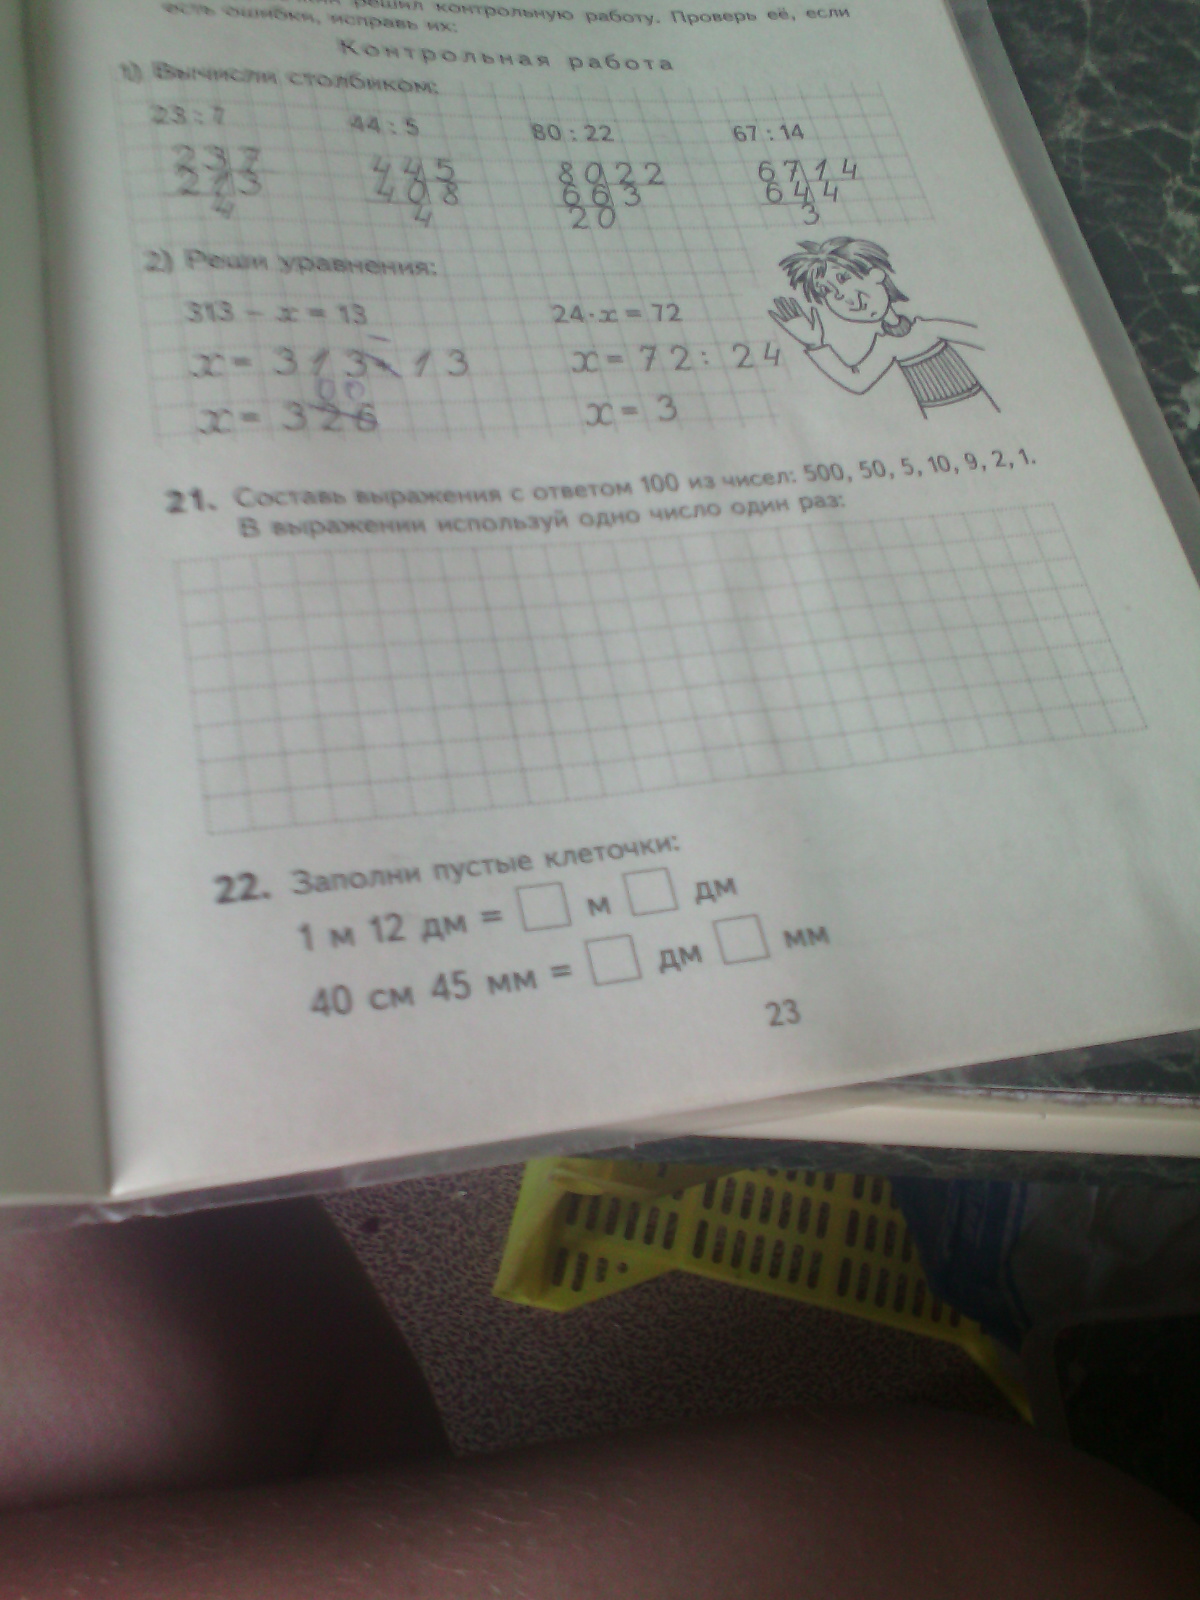 решил контрольную работу. Проверь её, если
есть ошибки, исправь их:
Контрольная работа
1) Вычисли столбиком:
23 : 7 44 : 5 80 : 22 67 : 14
23 7 44 5 80 22 67 14
21 3 40 8 66 3 64 4
4 4 20 3
2) Реши уравнения:
313 - x = 13 24·x = 72
x = 313 - 13 x = 72 : 24
00
x = 326 x = 3
21. Составь выражения с ответом 100 из чисел: 500, 50, 5, 10, 9, 2, 1.
В выражении используй одно число один раз:
22. Заполни пустые клеточки:
1 м 12 дм = м дм
40 см 45 мм = дм мм
23